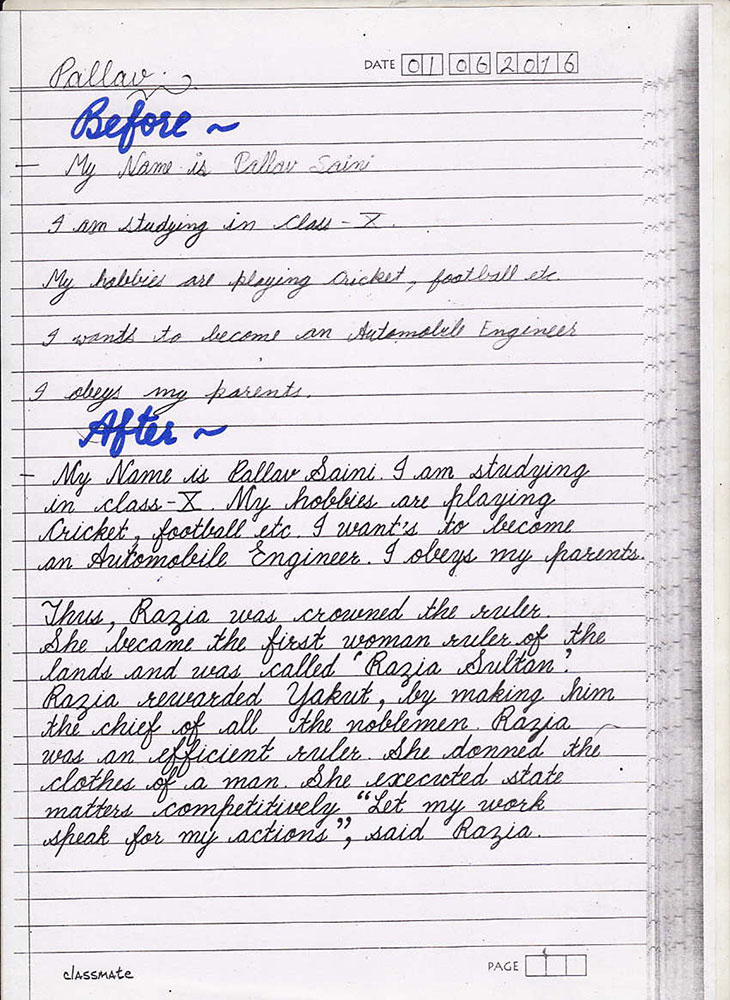 DATE 01 06 2016
Pallav
Before ~
My Name is Pallav Saini
I am studying in class - X.
My hobbies are playing Cricket, football etc.
I wants to become an Automobile Engineer
I obeys my parents.
After ~
My Name is Pallav Saini. I am studying
in class-X. My hobbies are playing
Cricket, football etc. I want's to become
an Automobile Engineer. I obeys my parents.
Thus, Razia was crowned the ruler.
She became the first woman ruler of the
lands and was called 'Razia Sultan'.
Razia rewarded Yakut, by making him
the chief of all the noblemen. Razia
was an efficient ruler. She donned the
clothes of a man. She executed state
matters competitively “Let my work
speak for my actions”, said Razia.
classmate
PAGE